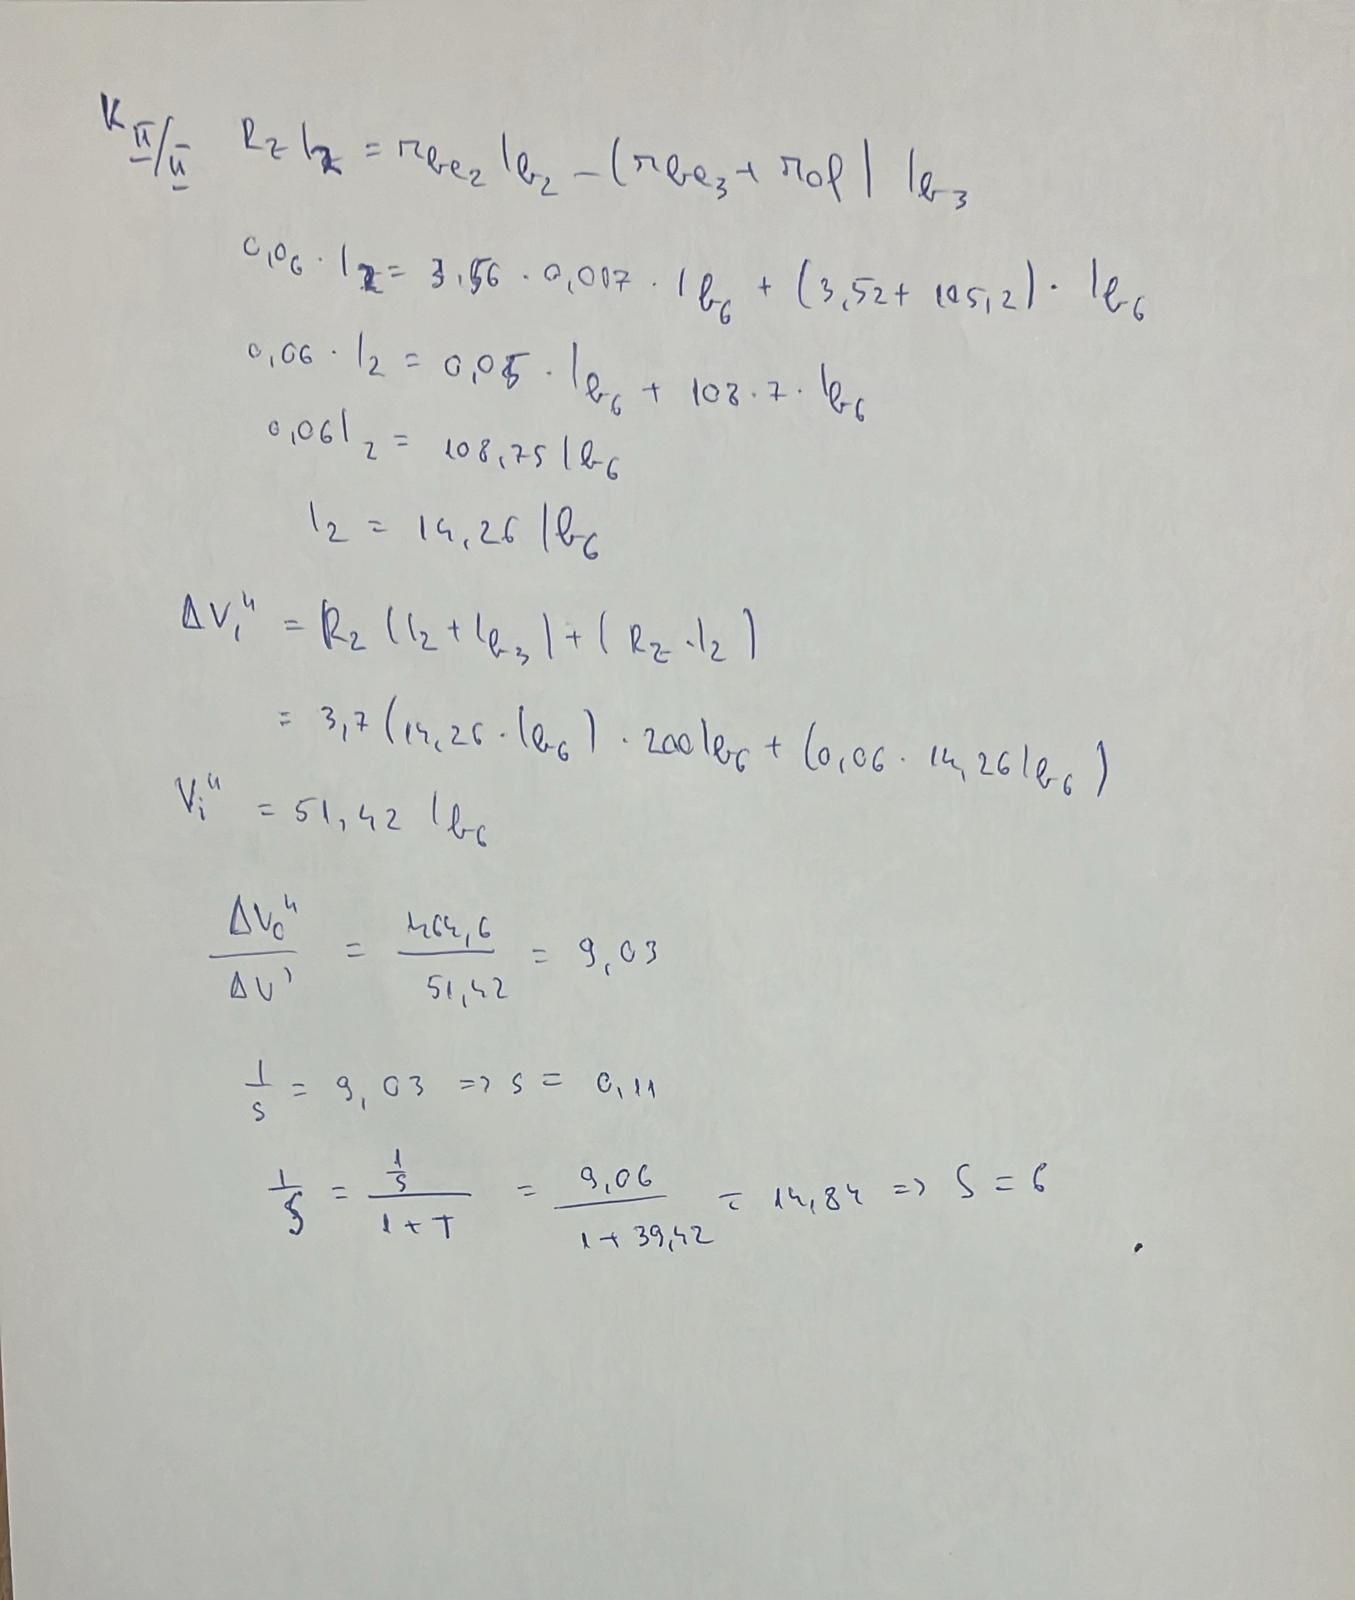 K II/II Rz Iz = rbe2 Ib2 - (rbe3 + rop) Ib3
0,06 · I2 = 3,56 · 0,007 · Ib6 + (3,52 + 105,2) · Ib6
0,06 · I2 = 0,05 · Ib6 + 108.7 · Ib6
0,06 I2 = 108,75 Ib6
I2 = 14,26 Ib6
ΔVi" = R2 (I2 + Ib3) + (Rz · I2)
= 3,7 (14,26 · Ib6) · 200 Ib6 + (0,06 · 14,26 Ib6)
Vi" = 51,42 Ib6
ΔVo" / ΔV' = 464,6 / 51,42 = 9,03
1/s = 9,03 => s = 0,11
1/S = (1/s) / (1 + T) = 9,06 / (1 + 39,42) = 14,84 => S = 6